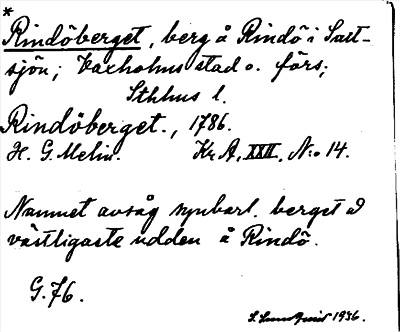 *
Rindöberget, berg å Rindö i Salt-
sjön; Vaxholms stad o. förs;
Sthlms l.
Rindöberget., 1786.
H. G. Melin. Kr A, XXII, No 14.
Namnet avsåg synbarl. berget å
västligaste udden å Rindö.
G. 76.
1936.